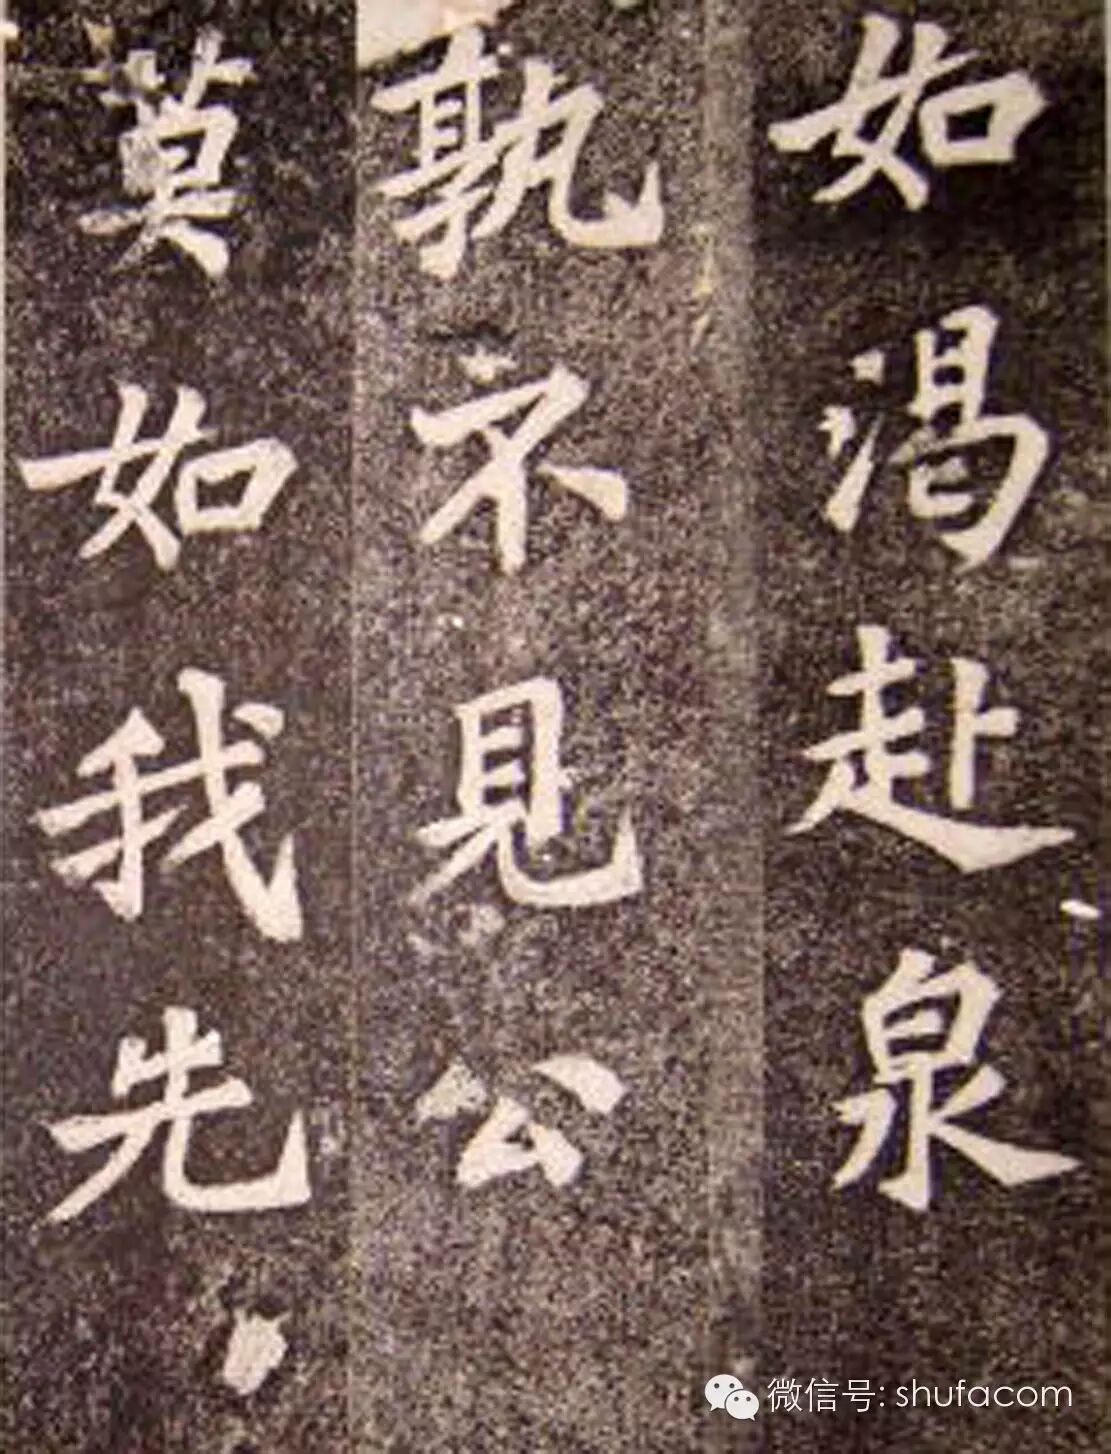 如渴赴泉
孰不見公
莫如我先
微信号: shufacom